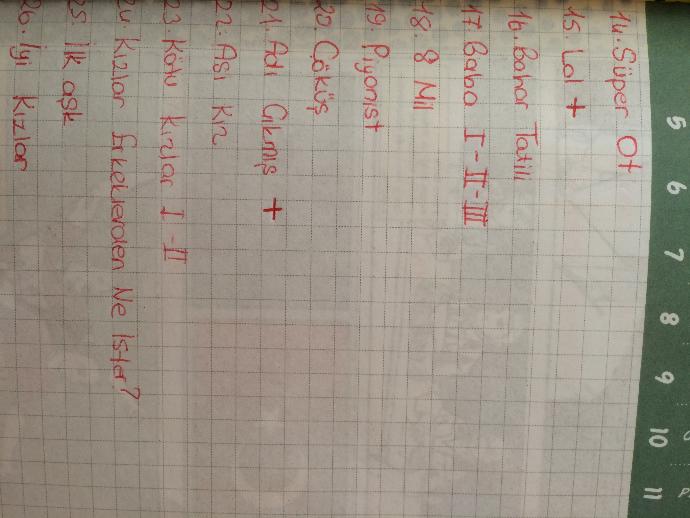 14. Süper Ot
15. Lal +
16. Bahar Tatili
17. Baba I-II-III
18. 8 Mil
19. Piyanist
20. Çöküş
21. Adı Çıkmış +
22. Asi Kız
23. Kötü kızlar I-II
24. Kızlar Erkeklerden Ne İster?
25. İlk aşk
26. İyi Kızlar
5
6
7
8
9
10
11